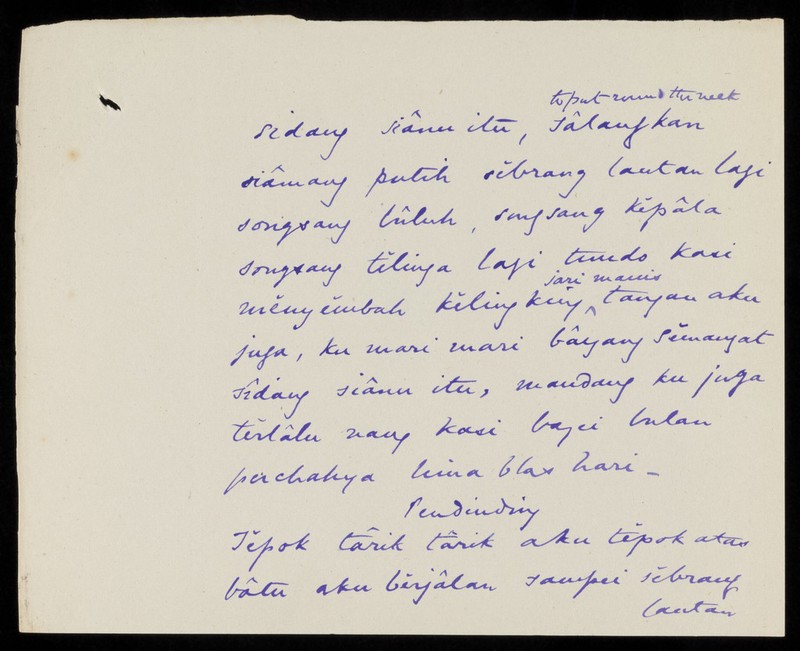 to put round the neck
sidang siânu itu, sâlangkan
siâmang putih sĕbrang lautan lagi
songsang bûluh, songsang kĕpâla
songsang tĕlinga lagi tundo kasi
jari manis
mĕnyĕmbah kĕlingking ^ tangan aku
juga, ku mari mari bâyang sĕmangat
sîdang siânu itu, mandang ku juga
tĕrlâlu nang kasi bagei bulan
perchahya lima blas hari –
Pendinding
Tĕpok târik târik aku tĕpok atas
bâtu aku bĕrjâlan sampei sĕbrang
lautan